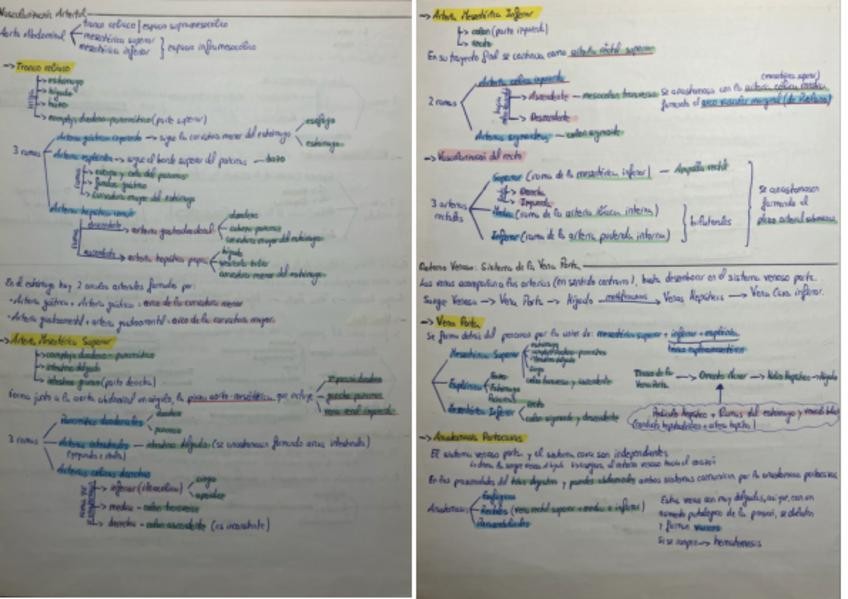 Vascularización Arterial
Aorta Abdominal
tronco celiaco
mesentérica superior
espacio supramesocólico
mesentérica inferior
espacio inframesocólico
→ Tronco celiaco
→ estómago
→ hígado
→ bazo
→ complejo duodeno-pancreático (parte superior)
3 ramas
Arteria gástrica izquierda → sigue la curvatura menor del estómago
esófago
estómago
Arteria esplénica → sigue el borde superior del páncreas → bazo
→ cuerpo y cola del páncreas
→ fundus gástrico
→ curvatura mayor del estómago
Arteria hepática común
descendente → arteria gastroduodenal
duodeno
cabeza páncreas
curvatura mayor del estómago
ascendente → arteria hepática propia
hígado
vesícula biliar
curvatura menor del estómago
En el estómago hay 2 arcos arteriales formados por:
· Arteria gástrica + Arteria gástrica: arco de la curvatura menor
· Arteria gastroomental + arteria gastroomental: arco de la curvatura mayor
→ Arteria Mesentérica Superior
→ complejo duodeno-pancreático
→ intestino delgado
→ intestino grueso (parte derecha)
Forma junto a la aorta abdominal un ángulo, la pinza aorto-mesentérica que incluye
3ª porción duodeno
gancho páncreas
vena renal izquierda
3 ramas
Pancreático duodenales
duodeno
páncreas
Arterias intestinales → intestino delgado (se anastomosan formando arcos intestinales)
(yeyunales e ileales)
Arterias cólicas derechas
→ inferior (ileocólica)
ciego
apéndice
→ media - colon transverso
→ derecha - colon ascendente (es inconstante)
→ Arteria Mesentérica Inferior
→ colon (parte izquierda)
→ recto
En su trayecto final se continua como arteria rectal superior
2 ramas
Arteria cólica izquierda
→ Ascendente → mesocolon transverso
Se anastomosa con la arteria cólica media
(mesentérica superior)
formando el arco vascular marginal (de Riolano)
→ Descendente
Arterias sigmoideas → colon sigmoide
→ Vascularización del recto
3 arterias rectales
Superior (rama de la mesentérica inferior) — Ampolla rectal
→ Derecha
→ Izquierda
Media (rama de la arteria ilíaca interna)
Inferior (rama de la arteria pudenda interna)
bilaterales
Se anastomosan
formando el
plexo arterial submucoso
Retorno Venoso: Sistema de la Vena Porta
Las venas acompañan a las arterias (en sentido contrario), hasta desembocar en el sistema venoso porta.
Sangre Venosa → Vena Porta → Hígado → Venas Hepáticas → Vena Cava inferior.
→ Vena Porta
Se forma detrás del páncreas por la unión de: mesentérica superior + inferior + esplénica
Mesentérica Superior
complejo duodeno-pancreático
intestino delgado
ciego
colon transverso y ascendente
Esplénica
Bazo
Estómago
Páncreas
Mesentérica Inferior
recto
colon sigmoide y descendente
Tronco de la
Vena Porta
→ Omento Menor → Hilio Hepático → Hígado
Pedículo hepático + Ramas del estómago y
→ Anastomosis Portocavas
El sistema venoso porta y el sistema cava son independientes
En las proximidades del tubo digestivo y paredes abdominales ambos sistemas comunican por las anastomosis portocavas
Anastomosis
Esofágicas
Rectales (vena rectal superior + media e inferior)
Paraumbilicales
Estas venas son muy delgadas, así que, con un
aumento patológico de la presión, se dilatan
y forman varices
Si se rompe → hematemesis